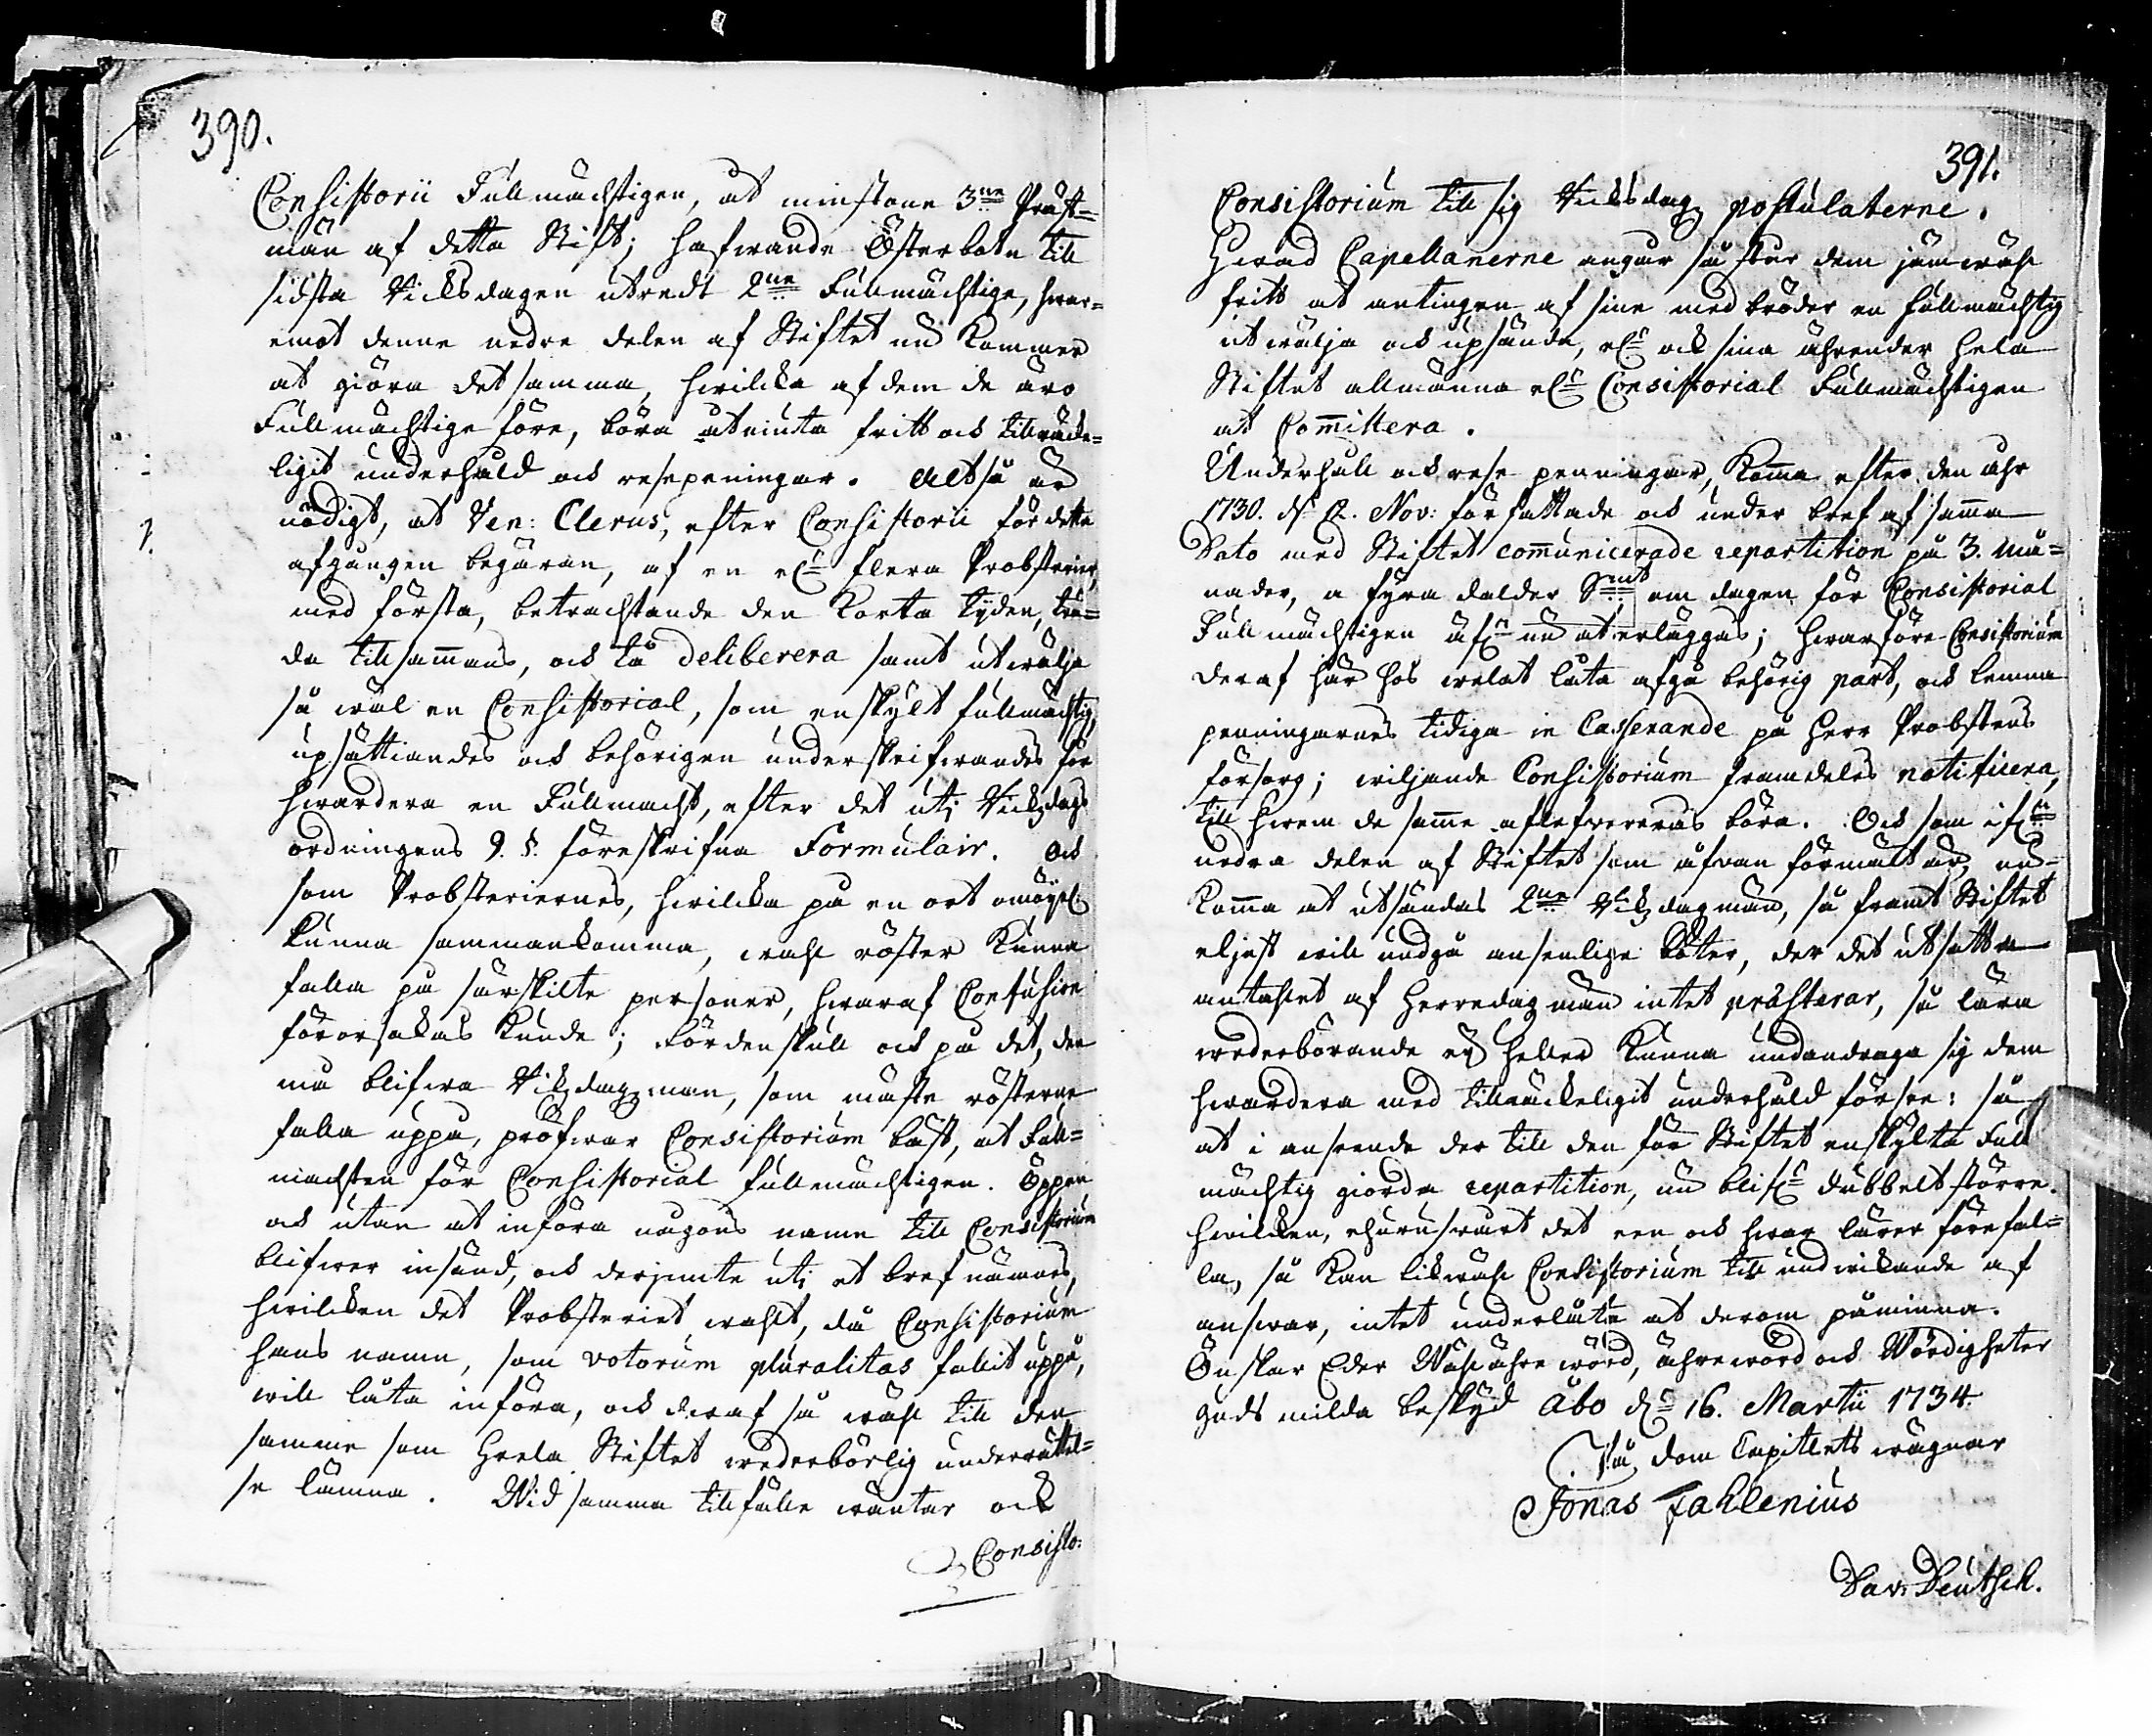 390.
Consistorii Fullmächtigen, at minstone 3ne Präst=
män af detta Stift; hafwande Österboten till
sidsta Ricksdagen utredt 2ne Fullmächtige, hwar=
emot denne nedre delen af Stiftet nu kommer
at giöra det samma, hwilcka af dem de äro
Fullmächtige före, böra åtniuta fritt och tillräcke=
ligit underhåld och resepeningar. Altså är
nödigt, at Ven: Clerus, efter Consistorii för detta
afgången begäran, af en ell:r flera Probsterier,
med första, betrachtande den korta tijden, trä=
da tillsammans, och tå deliberera samt utwälja
så wäl en Consistorial, som enskylt fullmächtig,
upsättiandes och behörigen underskrifwandes för
hwardera en Fullmacht, efter det uti Ricksdags
ordningens 9. §. föreskrifna Formulair. Och
som Probsteriernes, hwilcka på en ort omöyel:
kunna sammankomma, wahl röster kunna
falla på särskilte personer, hwaraf Confusion
förorsakas kunde; Fördenskull och på det, den
må blifwa Ricksdagzman, som mäste rösterne
falla uppå, pröfwar Consistorium bäst, at full=
machten för Consistorial fullmächtigen. Öppen
och utan at införa någons namn till Consistorium
blifwer insänd, och derjemte uti et bref nämnes,
hwilcken det Probsteriet wahlt, då Consistorium
hans namn, som votorum pluralitas fallit uppå,
will låta införa, och deraf så wähl till den
samme som Heela Stiftet wederbörlig underrättel=
se lämna. Wid samma tillfälle wäntar och
Consisto:
391.
Consistorium till sig Ricksdagz postulaterne.
Hwad Capellanerne angår så står dem jämwähl
fritt at antingen af sine medbröder en fullmächtig
utwälja och upsända, ell:r och sina ährender hela
Stiftet allmänna ell:r Consistorial Fullmächtigen
at Committera.
Underhåll och rese penningar, komma efter den åhr
1730. d. 12. Nov: författade och under bref af samma
Dato med Stiftet communicerade repartition på 3. må=
nader, a fyra daler Smt om dagen för Consistorial
Fullmächtigen äf:n nu at erläggas; hwarföre Consistorium
deraf här hos welat låta afgå behörig part, och lemna
penningarnes tidiga in Casserande på Herr Probstens
försorg; wiljande Consistorium framdeles notificera,
till hwem de samme aflefwereras böra. Och som if:n
nedra delen af Stiftet som äfwan förmält är, nu
komma at utsändas 2ne Ricksdagzmän, så framt Stiftet
eljest will undgå ansenlige böter, der det utsatta
antahlet af Herredagzmän intet præsterar, så lära
wederbörande ey heller kunna undandraga sig dem
hwardera med tillräckeligit underhåld förse: så
at i anseende der till den för Stiftet enskylta Full
mächtig giorda repartition, nu blif:r dubbelt större.
hwilcken, ehuruswart det een och hwar lärer förefal=
la, så kan likwähl Consistorium till undwikande af
answar, intet underlåta at derom påminna.
Önskar Eder Wähl ährewörd, ährewörd och Wördigheter
Guds milda beskydd Åbo d:n 16. Martii 1734.
På Dom Capitlets wägnar
Jonas Fahlenius
Dav: Deutsch.